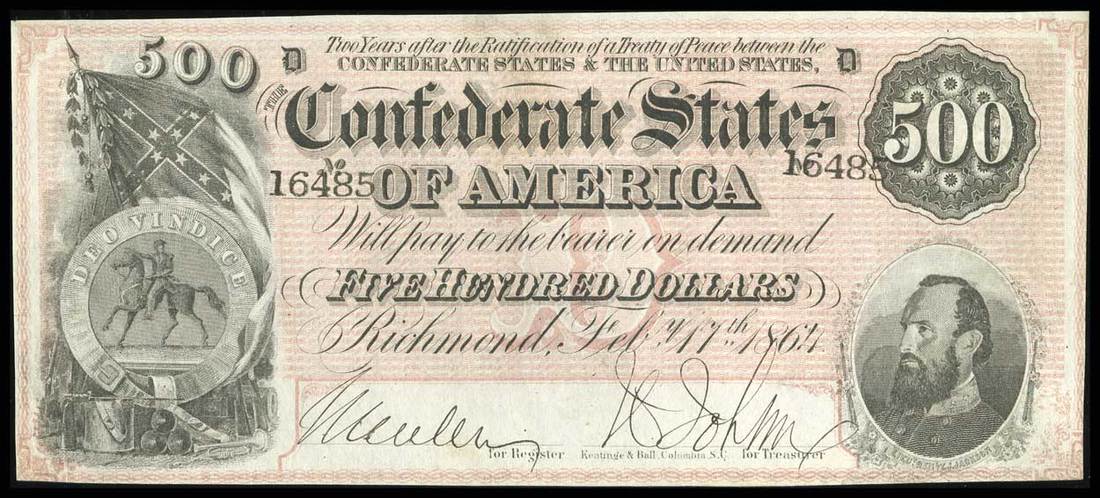 500
D
Two Years after the Ratification of a Treaty of Peace between the
D
CONFEDERATE STATES & THE UNITED STATES,
THE
Confederate States
500
No 16485
No 16485
OF AMERICA
DEO VINDICE
Will pay to the bearer on demand
FIVE HUNDRED DOLLARS
Richmond, Feby 17th 1864
for Register
Keatinge & Ball, Columbia, S.C.
for Treasurer